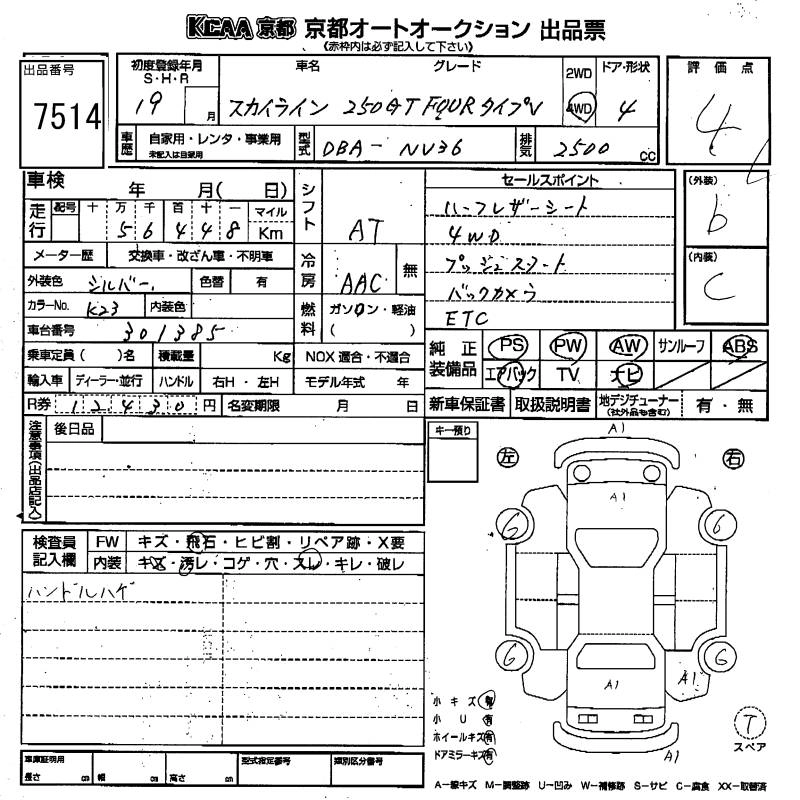 KCAA 京都 京都オートオークション 出品票
《赤枠内は必ず記入して下さい》
出品番号
7514
初度登録年月
S・H・R
19 月
車名 グレード
スカイライン 250GT FOUR タイプV
2WD
4WD
ドア・形状
4
評価点
4
車歴 自家用・レンタ・事業用
未記入は自家用
型式 DBA- NV36
排気 2500 cc
車検 年 月( 日)
シフト AT
セールスポイント
ハーフレザーシート
4WD
プッシュスタート
バックカメラ
ETC
(外装)
b
(内装)
C
走行 記号 十 万 千 百 十 一 マイル
5 6 4 4 8 Km
メーター歴 交換車・改ざん車・不明車
冷房 AAC 無
外装色 シルバー 色替 有
カラーNo. K23 内装色
燃料 ガソリン・軽油
( )
車台番号 301385
乗車定員( )名 積載量 Kg NOX 適合・不適合
輸入車 ディーラー・並行 ハンドル 右H・左H モデル年式 年
R券 12430円 名変期限 月 日
純正装備品 PS PW AW サンルーフ ABS
エアバック TV ナビ
新車保証書 取扱説明書 地デジチューナー
(社外品も含む) 有・無
注意事項(出品店記入)
後日品
キー預り
左 右
A1
A1
G G
G G
A1 A1
A1
検査員記入欄 FW キズ・飛石・ヒビ割・リペア跡・X要
内装 キズ・汚レ・コゲ・穴・スレ・キレ・破レ
ハンドルハゲ
小キズ 有
小U 有
ホイールキズ 有
ドアミラーキズ 有
T
スペア
車庫証明用
長さ cm 幅 cm 高さ cm
型式指定番号 類別区分番号
A-線キズ M-調整跡 U-凹み W-補修跡 S-サビ C-腐食 XX-取替済